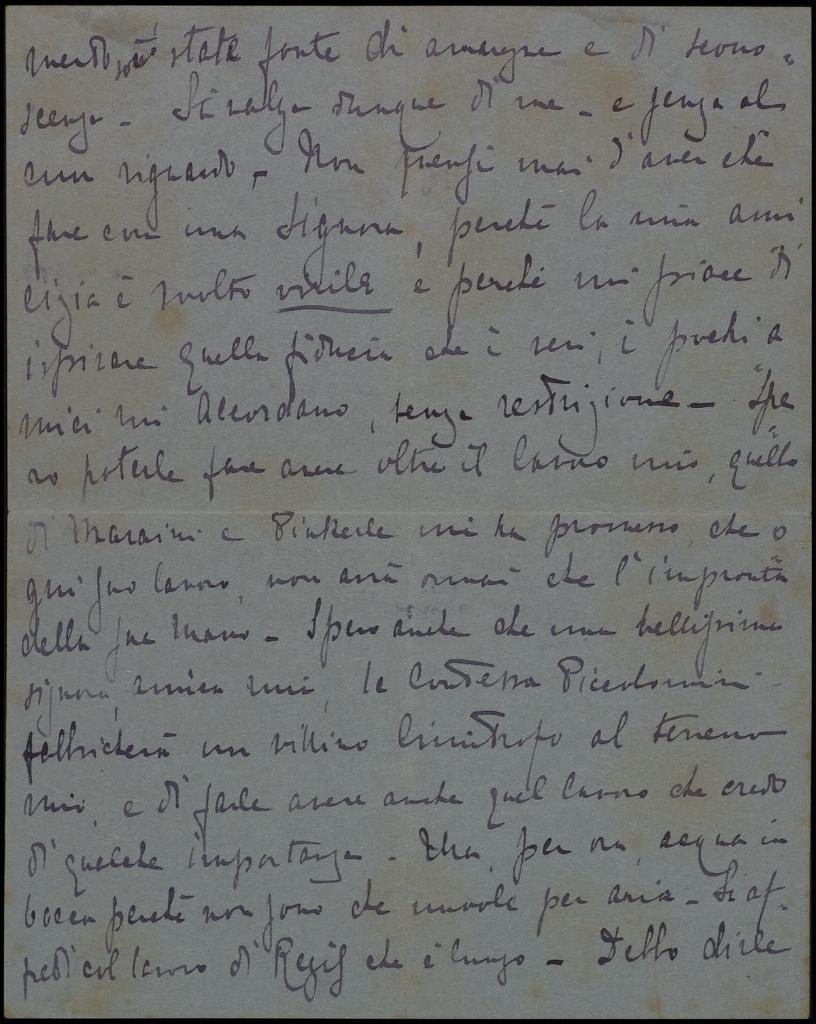 state fonte di amarezze e di scono-
scenza - Si valga dunque di me - e senza al
cun riguardo - Non pensi mai d'aver che
fare con una Signora, perchè la mia ami
cizia è molto virile e perchè mi piace di
ispirare quella fiducia che i veri, i pochi a
mici mi accordano, senza restrizione - Spe
ro poterle fare avere oltre il lavoro mio, quello
di Maraini e Pinkerle mi ha promesso, che o
gni suo lavoro, non avrà ormai che l'impronta
della sua mano - Spero anche che una bellissima
signora, amica mia, la Contessa Piccolomini
fabbricherà un villino limitrofo al terreno
mio, e di farle avere anche quel lavoro che credo
di qualche importanza - Ma, per ora, acqua in
bocca perchè non sono che nuvole per aria - Si af-
fretti col lavoro di Regis che è lungo - Debbo dirle